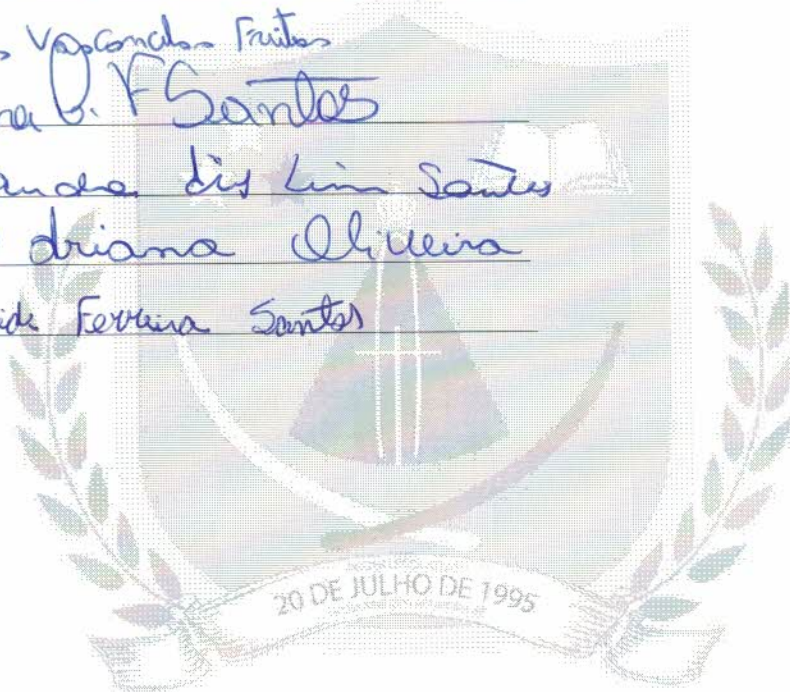 Vasconcelos Freitas
Santos
dis Lima Santos
driana Oliveira
Ferreira Santos
20 DE JULHO DE 1995